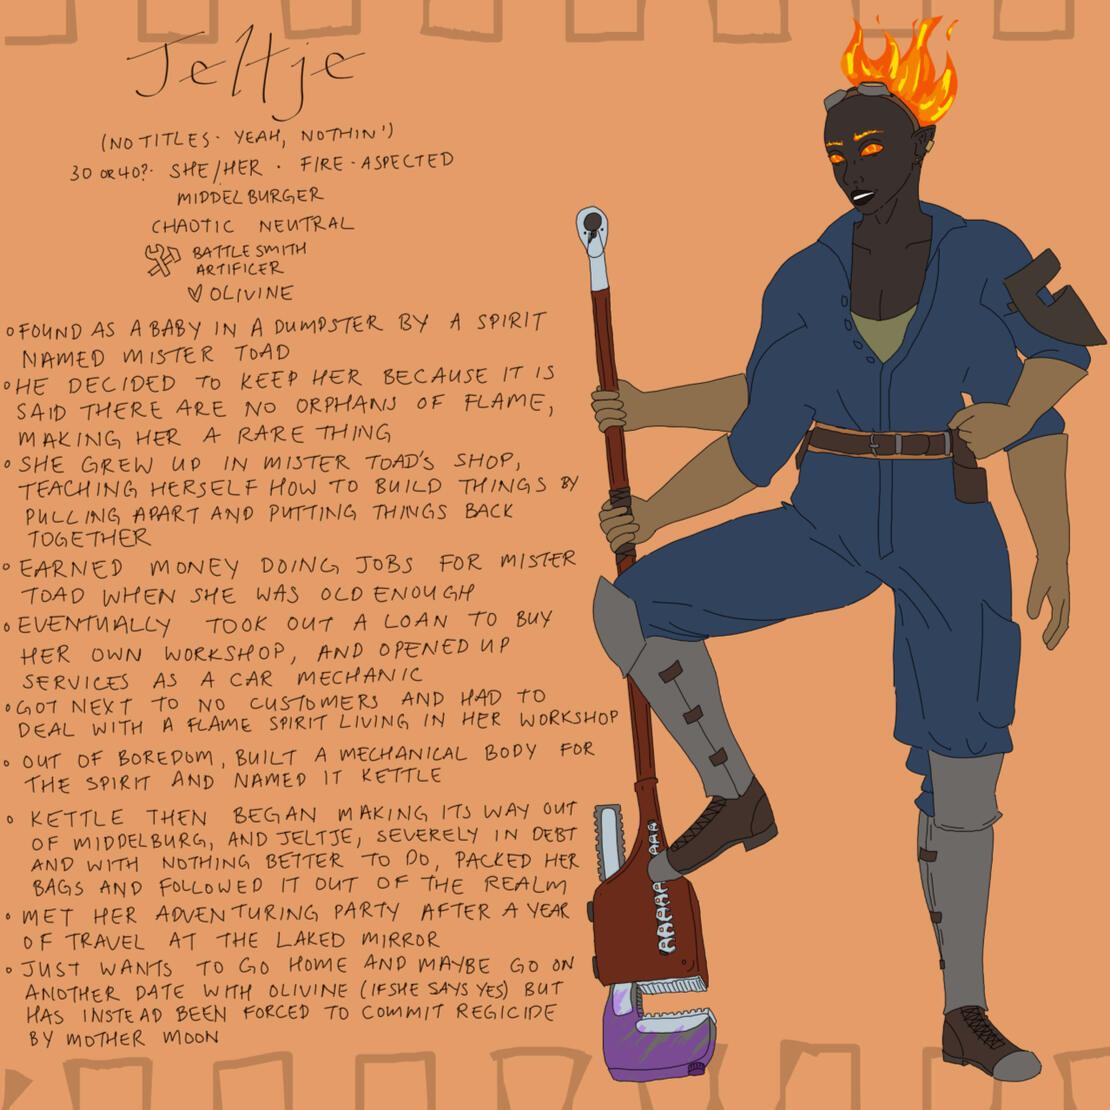 Jeltje
(NO TITLES. YEAH, NOTHIN')
30 OR 40?. SHE/HER . FIRE-ASPECTED
MIDDELBURGER
CHAOTIC NEUTRAL
BATTLE SMITH
ARTIFICER
♡ OLIVINE
∘ FOUND AS A BABY IN A DUMPSTER BY A SPIRIT
NAMED MISTER TOAD
∘ HE DECIDED TO KEEP HER BECAUSE IT IS
SAID THERE ARE NO ORPHANS OF FLAME,
MAKING HER A RARE THING
∘ SHE GREW UP IN MISTER TOAD'S SHOP,
TEACHING HERSELF HOW TO BUILD THINGS BY
PULLING APART AND PUTTING THINGS BACK
TOGETHER
∘ EARNED MONEY DOING JOBS FOR MISTER
TOAD WHEN SHE WAS OLD ENOUGH
∘ EVENTUALLY TOOK OUT A LOAN TO BUY
HER OWN WORKSHOP, AND OPENED UP
SERVICES AS A CAR MECHANIC
∘ GOT NEXT TO NO CUSTOMERS AND HAD TO
DEAL WITH A FLAME SPIRIT LIVING IN HER WORKSHOP
∘ OUT OF BOREDOM, BUILT A MECHANICAL BODY FOR
THE SPIRIT AND NAMED IT KETTLE
∘ KETTLE THEN BEGAN MAKING ITS WAY OUT
OF MIDDELBURG, AND JELTJE, SEVERELY IN DEBT
AND WITH NOTHING BETTER TO DO, PACKED HER
BAGS AND FOLLOWED IT OUT OF THE REALM
∘ MET HER ADVENTURING PARTY AFTER A YEAR
OF TRAVEL AT THE LAKED MIRROR
∘ JUST WANTS TO GO HOME AND MAYBE GO ON
ANOTHER DATE WITH OLIVINE (IF SHE SAYS YES) BUT
HAS INSTEAD BEEN FORCED TO COMMIT REGICIDE
BY MOTHER MOON